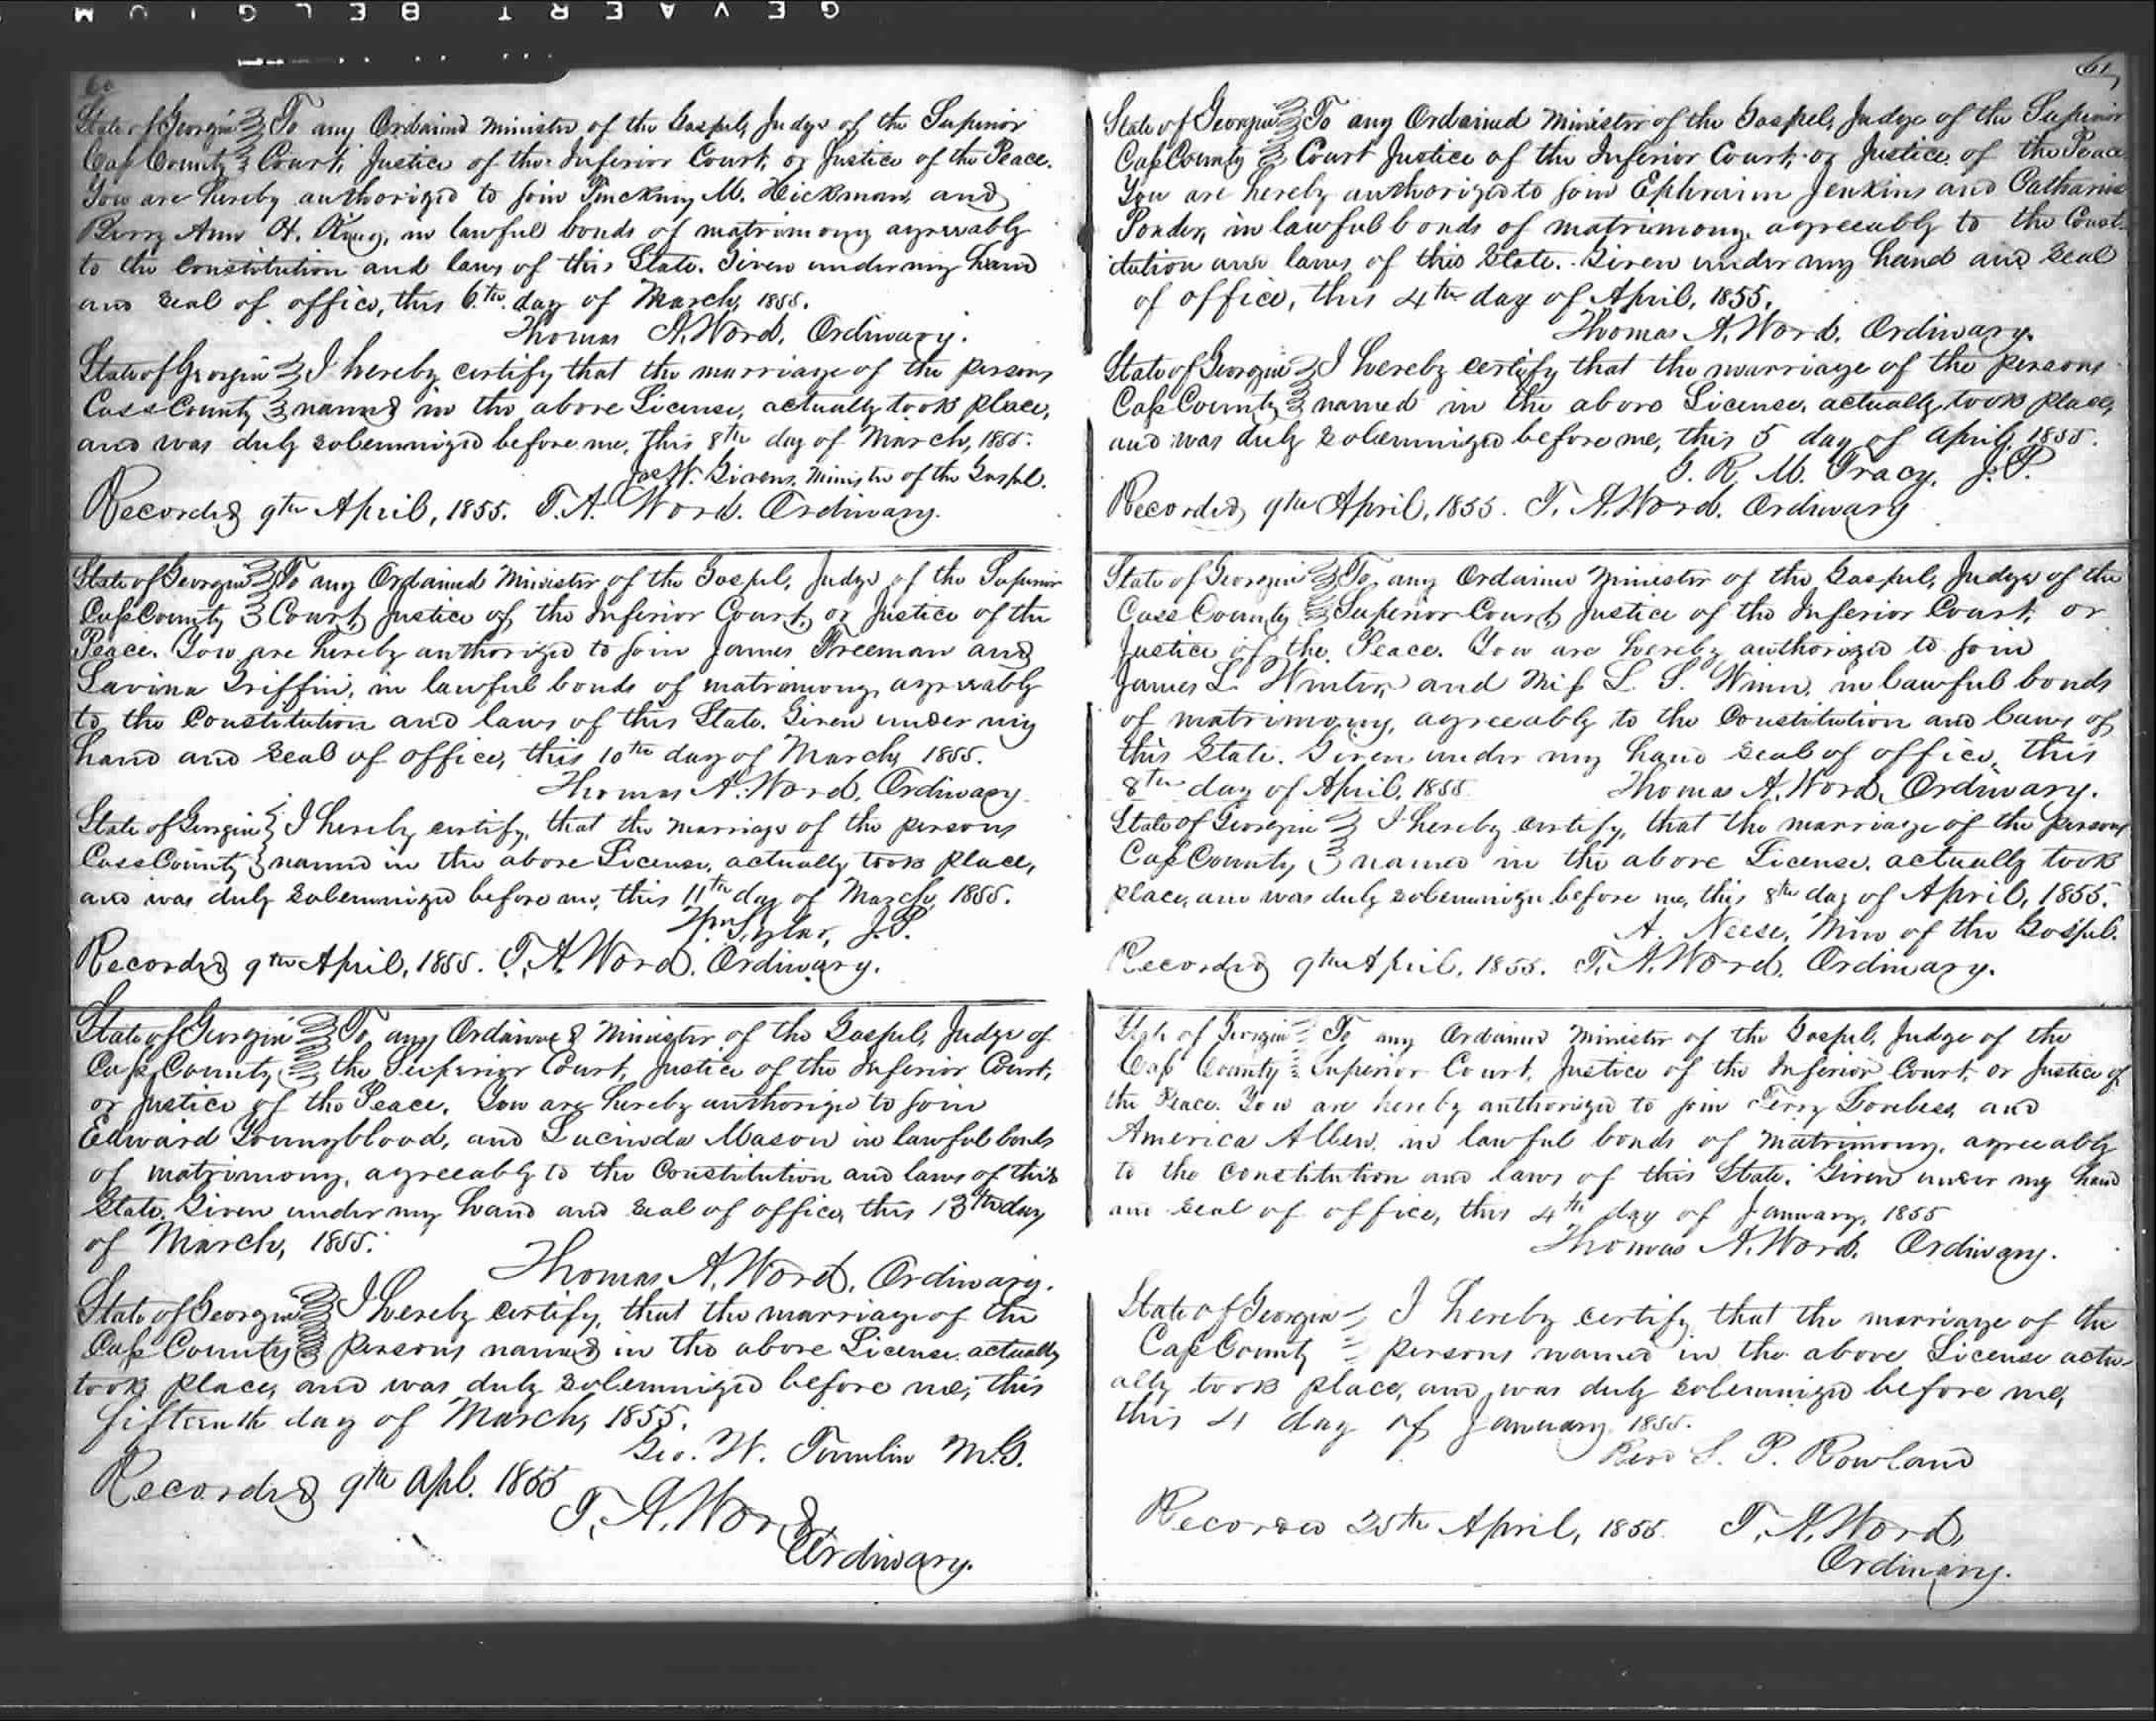 GEVAERT BELGIUM
60
State of Georgia To any Ordained Minister of the Gospel, Judge of the Superior
Cass County Court, Justice of the Inferior Court, or Justice of the Peace.
You are hereby authorized to join Pinckney M. Hickman, and
Berry Ann H. King, in lawful bonds of matrimony agreeably
to the Constitution and laws of this State. Given under my hand
and seal of office, this 6th day of March, 1855.
Thomas A. Word, Ordinary.
State of Georgia I hereby certify that the marriage of the persons
Cass County named in the above License, actually took place,
and was duly solemnized before me, this 8th day of March, 1855.
Givens, Minister of the Gospel.
Recorded 9th April, 1855. T. A. Word. Ordinary.
State of Georgia To any Ordained Minister of the Gospel, Judge of the Superior
Cass County Court, Justice of the Inferior Court, or Justice of the
Peace. You are hereby authorized to join James Freeman and
Lavina Griffin, in lawful bonds of matrimony, agreeably
to the Constitution and laws of this State. Given under my
hand and seal of office, this 10th day of March, 1855.
Thomas A. Word, Ordinary
State of Georgia I hereby certify, that the marriage of the persons
Cass County named in the above License, actually took place,
and was duly solemnized before me, this 11th day of March, 1855.
Wm Sylar, J.P.
Recorded 9th April, 1855. T. A. Word. Ordinary.
State of Georgia To any Ordained Minister of the Gospel, Judge of
Cass County the Superior Court, Justice of the Inferior Court,
or Justice of the Peace. You are hereby authorized to join
Edward Youngblood, and Lucinda Mason in lawful bonds
of matrimony, agreeably to the Constitution and laws of this
State. Given under my hand and seal of office, this 13th day
of March, 1855.
Thomas A. Word, Ordinary.
State of Georgia I hereby certify, that the marriage of the
Cass County persons named in the above License actually
took place, and was duly solemnized before me, this
fifteenth day of March, 1855.
Geo. W. Tumlin M.G.
Recorded 9th Apl. 1855
T. A. Word
Ordinary.
61
State of Georgia To any Ordained Minister of the Gospel, Judge of the Superior
Cass County Court Justice of the Inferior Court, or Justice of the Peace
You are hereby authorized to join Ephraim Jenkins and Catharine
Ponder, in lawful bonds of matrimony, agreeably to the Const-
itution and laws of this State. Given under my hand and seal
of office, this 4th day of April, 1855.
Thomas A. Word, Ordinary.
State of Georgia I hereby certify that the marriage of the persons
Cass County named in the above License, actually took place,
and was duly solemnized before me, this 5 day of April, 1855.
G. R. M. Tracy, J.P.
Recorded 9th April, 1855. T. A. Word. Ordinary
State of Georgia To any Ordained Minister of the Gospel, Judge of the
Cass County Superior Court, Justice of the Inferior Court, or
Justice of the Peace. You are hereby authorized to join
James L. Winter, and Miss L. S. Winn, in lawful bonds
of matrimony, agreeably to the Constitution and laws of
this State. Given under my hand seal of office, this
8th day of April, 1855 Thomas A. Word, Ordinary.
State of Georgia I hereby certify, that the marriage of the persons
Cass County named in the above License, actually took
place, and was duly solemnized before me, this 8th day of April, 1855.
A. Neese, Min of the Gospel.
Recorded 9th April, 1855. T. A. Word. Ordinary.
State of Georgia To any Ordained Minister of the Gospel, Judge of the
Cass County Superior Court, Justice of the Inferior Court, or Justice of
the Peace. You are hereby authorized to join Terry Loveless, and
America Allen, in lawful bonds of matrimony, agreeably
to the Constitution and laws of this State. Given under my hand
and seal of office, this 4th day of January, 1855
Thomas A. Word, Ordinary.
State of Georgia I hereby certify that the marriage of the
Cass County persons named in the above License actu-
ally took place, and was duly solemnized before me,
this 4 day of January 1855.
Revd S. P. Rowland
Recorded 25th April, 1855. T. A. Word,
Ordinary.